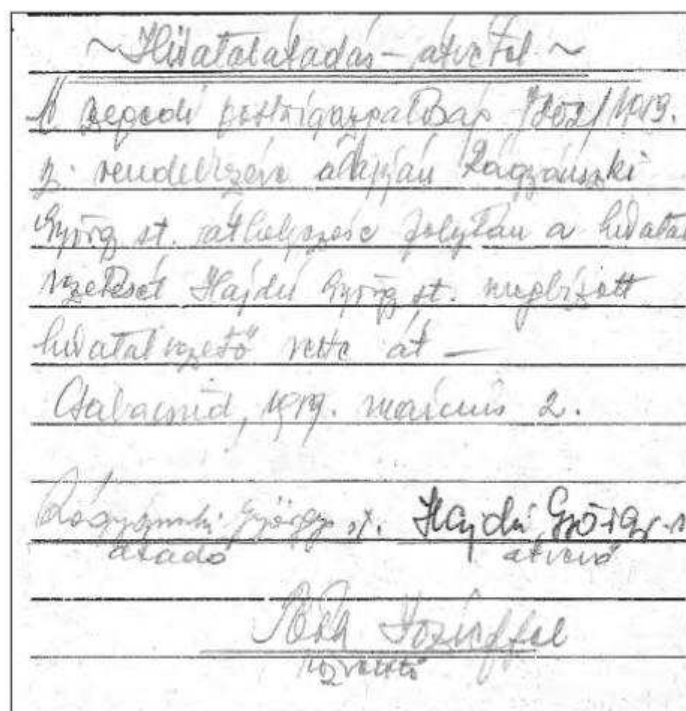 ~ Hivatalátadás – átvétel ~
A szegedi postaigazgatóság /1919.
sz. rendelkezése alapján
György st. áthelyezése folytán a hivatal
vezetését Hajdú György st. megbízott
hivatalvezető vette át –
Csabacsűd, 1919. március 2.
György st. Hajdú György
átadó átvevő